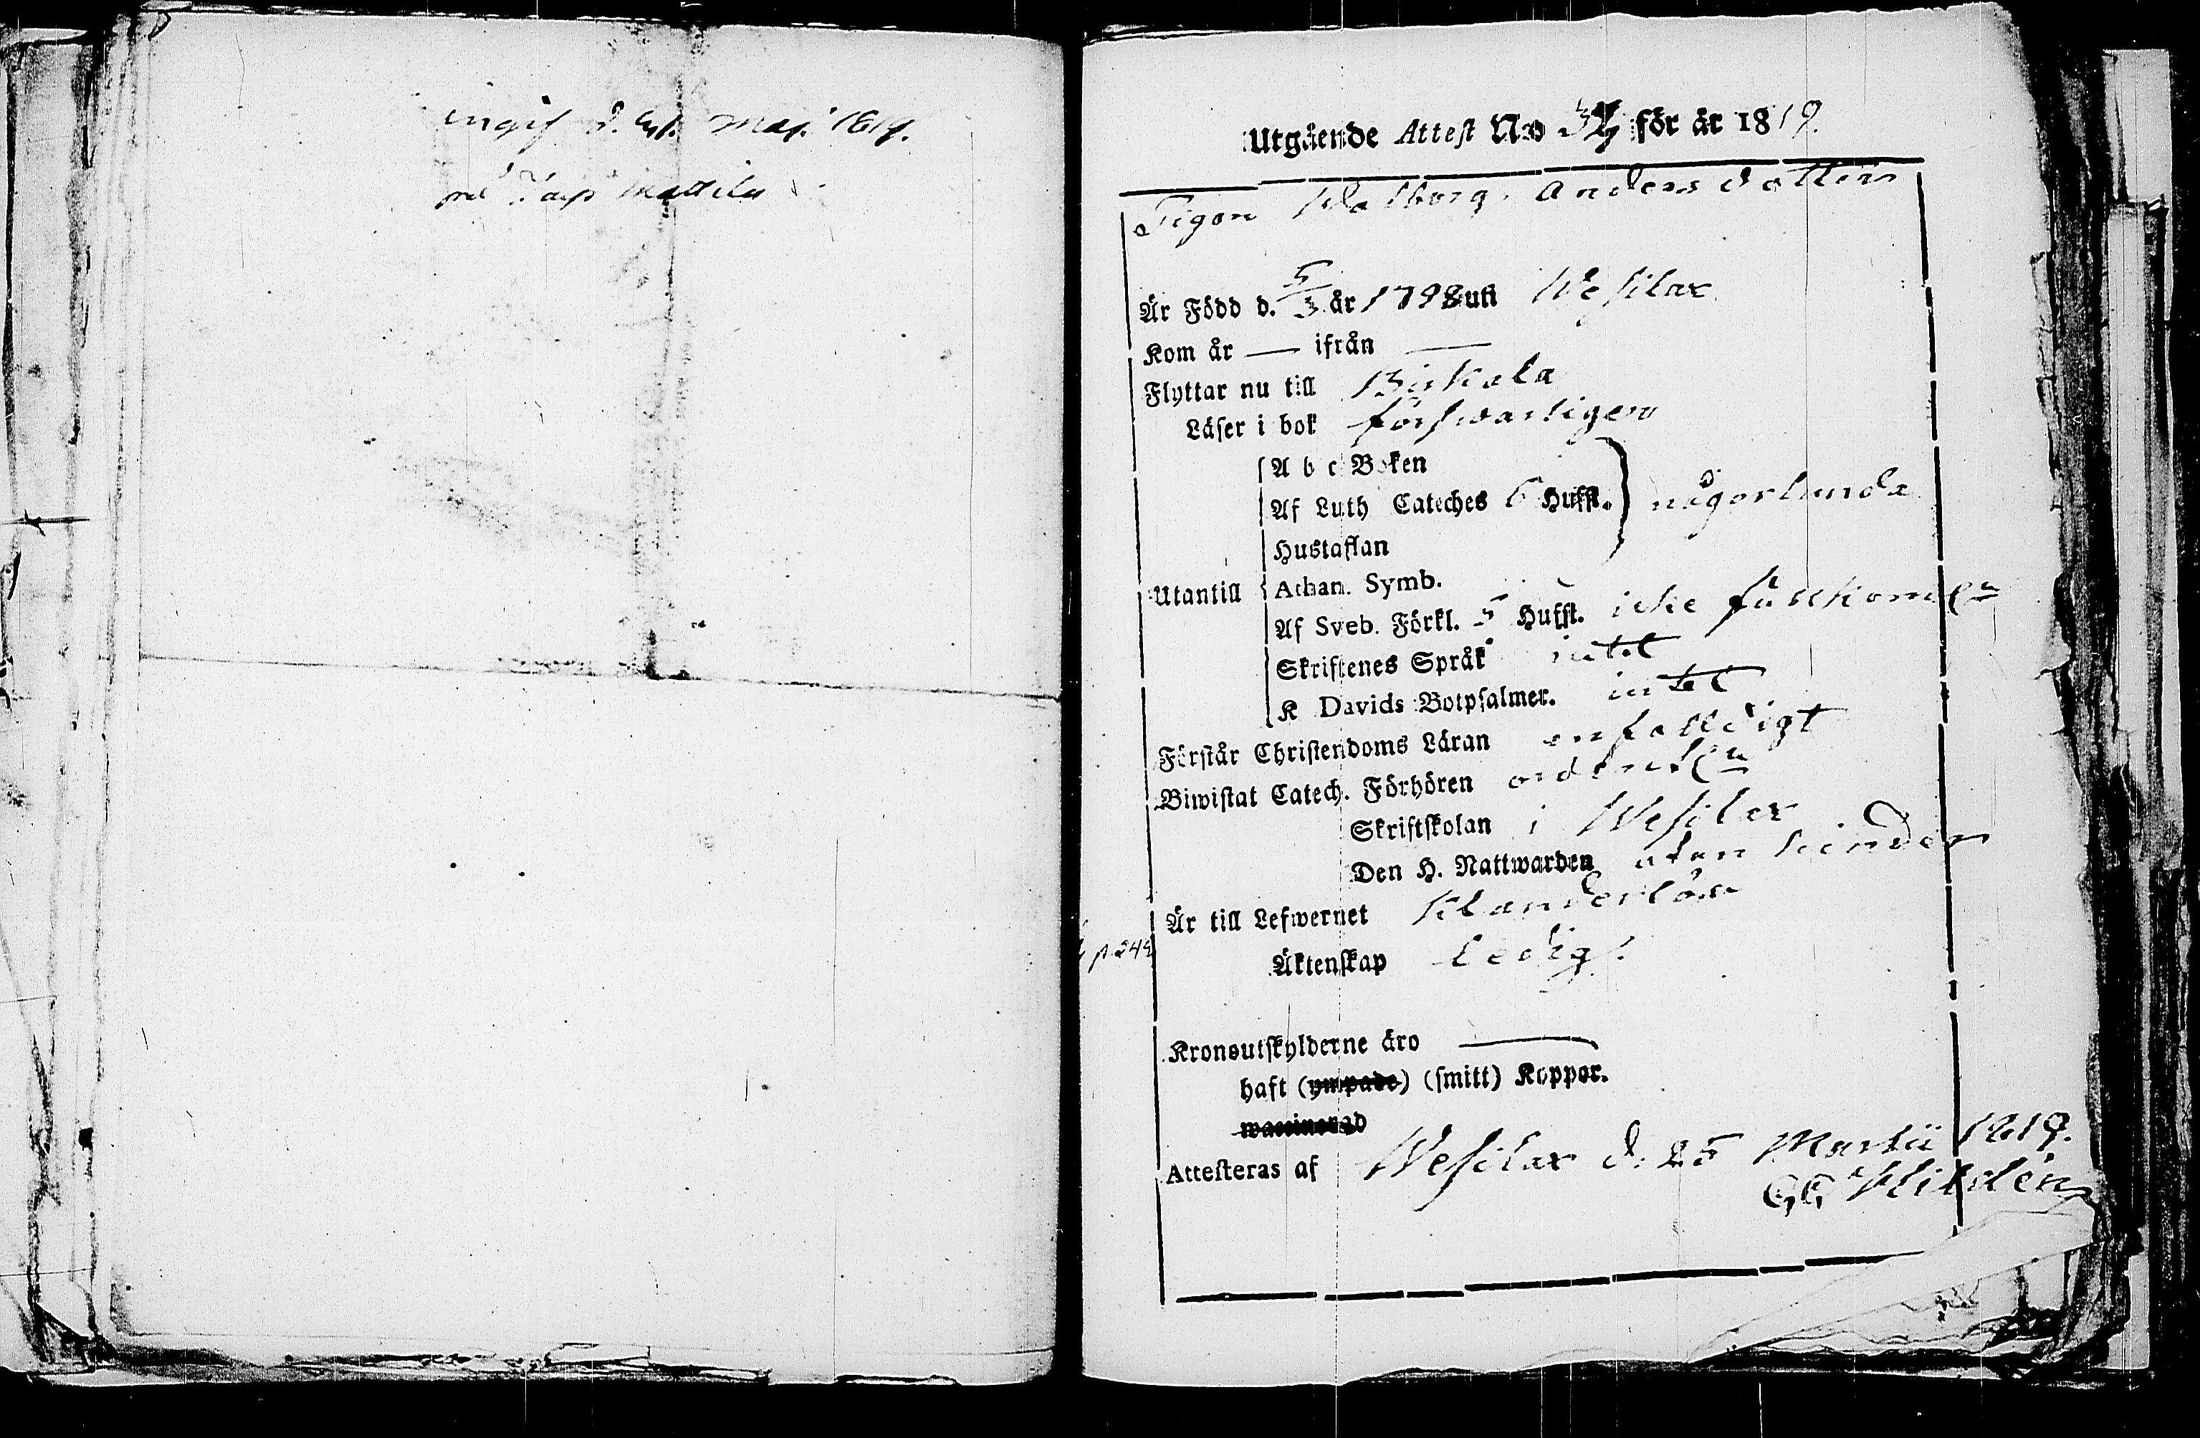 ingif d. Maji 1819.
Mattila
Utgående Attest No 34 för år 1819.
Pigan Walborg Andersdotter
Är Född d. 5/3 år 1798 uti Wesilax
Kom år — ifrån —
Flyttar nu till Birkala
Läser i bok förswarligen
A b c Boken
Af Luth Cateches 6 Hufst. någorlunda
Hustaflan
Utantill
Athan. Symb.
Af Sveb. Förkl. 5 Hufst. icke fullkoml:n
Skriftenes Språk intet
K Davids Botpsalmer. intet
Förstår Christendoms Läran enfalldigt
Biwistat Catech. Förhören ordentl:n
Skriftskolan i Wesilax
Den H. Nattwarden utan hinder
Är till Lefwernet Klanderlös
p 242
Äktenskap Ledig.
Kronoutskylderne äro —
haft (ympade) (smitt) Koppor.
waccinerad
Attesteras af Wesilax d. 25 Martii 1819.